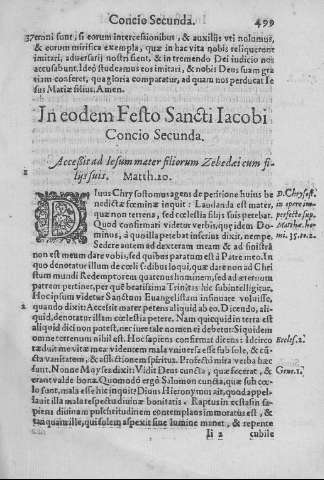 Concio Secunda. 499
teroni sunt, si eorum intercessionibus, & auxiliis vti nolumus,
& eorum mirifica exempla, quæ in hac vita nobis reliquerunt
imitari, aduersarij nostri sient, & in tremendo Dei iudicio nos
accusabunt. Ideo studeamus eos imitari, & nobis Deus suam gra
tiam conferet, qua gloria comparatur, ad quam nos perducat Ie
sus Mariæ filius. Amen.
In eodem Festo Sancti Iacobi
Concio Secunda.
Accessit ad Iesum mater filiorum Zebedæi cum fi-
lijs suis. Matth. 20.
Diuus Chrysostomus agens de petitione huius be
nedictæ fœminæ inquit: Laudanda est mater,
quæ non terrena, sed cœlestia filijs suis petebat.
Quod confirmari videtur verbis, quidem Do-
minus, à quo illa petebat inferius dixit, nempe.
Sedere autem ad dexteram meam & ad sinistrā
non est meum dare vobis, sed quibus paratum est à Patre meo. In
quo denotatur illum de cœli sedibus loqui, quæ dare non ad Chri
stum mundi Redemptorem quatenus hominem, sed ad æternum
patrem pertinet, per quē beatissima Trinitas hic subintelligitur.
Hoc ipsum videtur Sanctum Euangelistam insinuare voluisse,
quando dixit: Accessit mater petens aliquid ab eo. Dicendo, ali-
quid, denotatur illam cœlestia petere. Nam quicquid in terra est
aliquid dici non potest, nec iure tale nomen ei debetur: Siquidem
omne terrenum nihil est. Hoc sapiens confirmat dicens: Idcirco
tæduit me vitæ meæ videntem mala vniuersa esse sub sole, & cū
cta vanitatem, & afflictionem spiritus. Profectò mira verba hæc
sunt. Nonne Moyses dixit: Vidit Deus cuncta, quæ fecerat, &
erant valde bona. Quomodò ergò Salomon cuncta, quæ sub cœ-
lo sunt, mala esse hic inquit? Diuus Hieronymus ait, quod appel-
lauit illa mala respectu diuinæ bonitatis. Raptus in ecstasin sa-
piens diuinam pulchritudinem contemplans immoratus est, &
tanquam ille, qui solem aspexit sine lumine manet, & repente
Ii 2 cubile
2
D. Chrysost.
in opere im-
perfecto sup.
Matthæ. ho-
mi. 35. to. 2.
2
Eccles. 2.
Gene. 1.